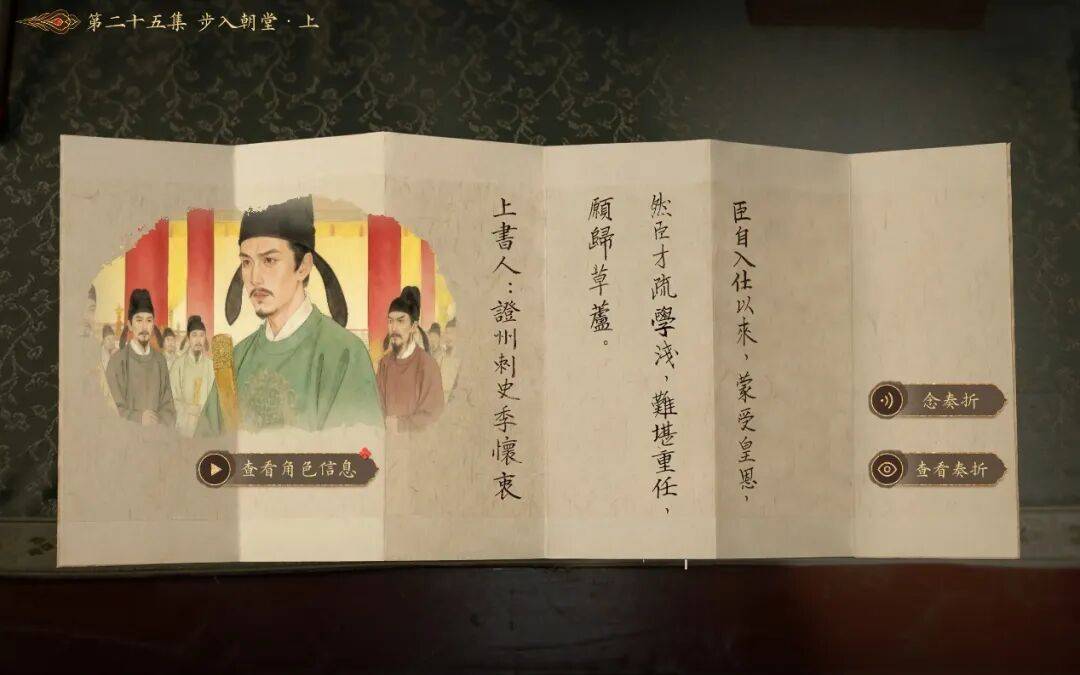 第二十五集 步入朝堂·上
臣自入仕以來，蒙受皇恩，
然臣才疏學淺，難堪重任，
願歸草蘆。
上書人：證州刺史季懷衷
查看角色信息
念奏折
查看奏折